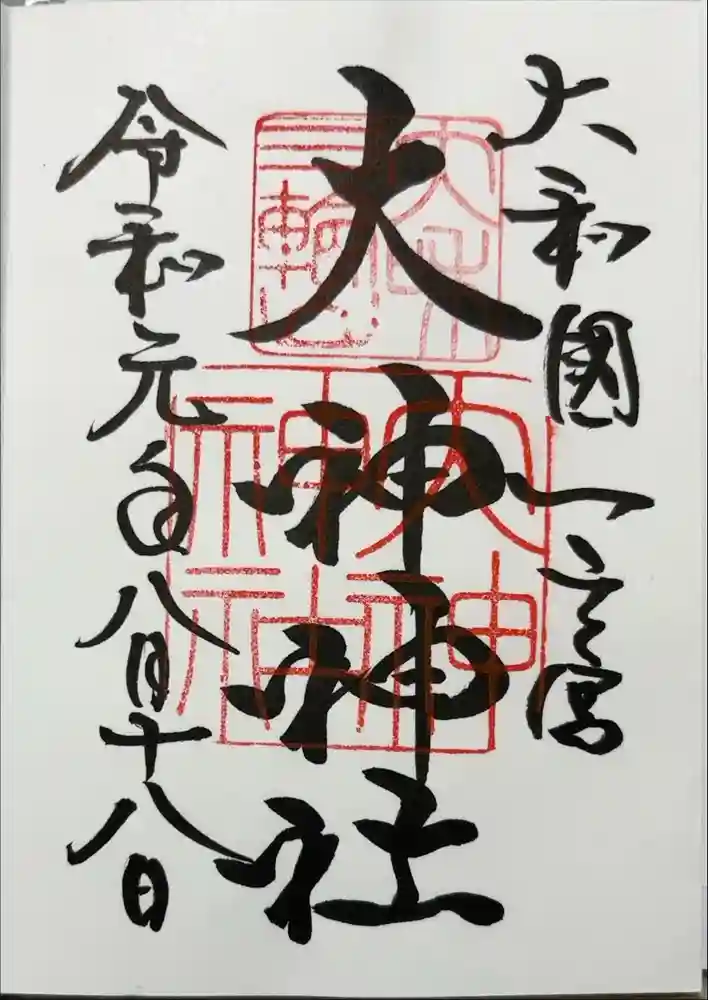 大和國一之宮
大神神社
令和元年八月十八日
大神
神社